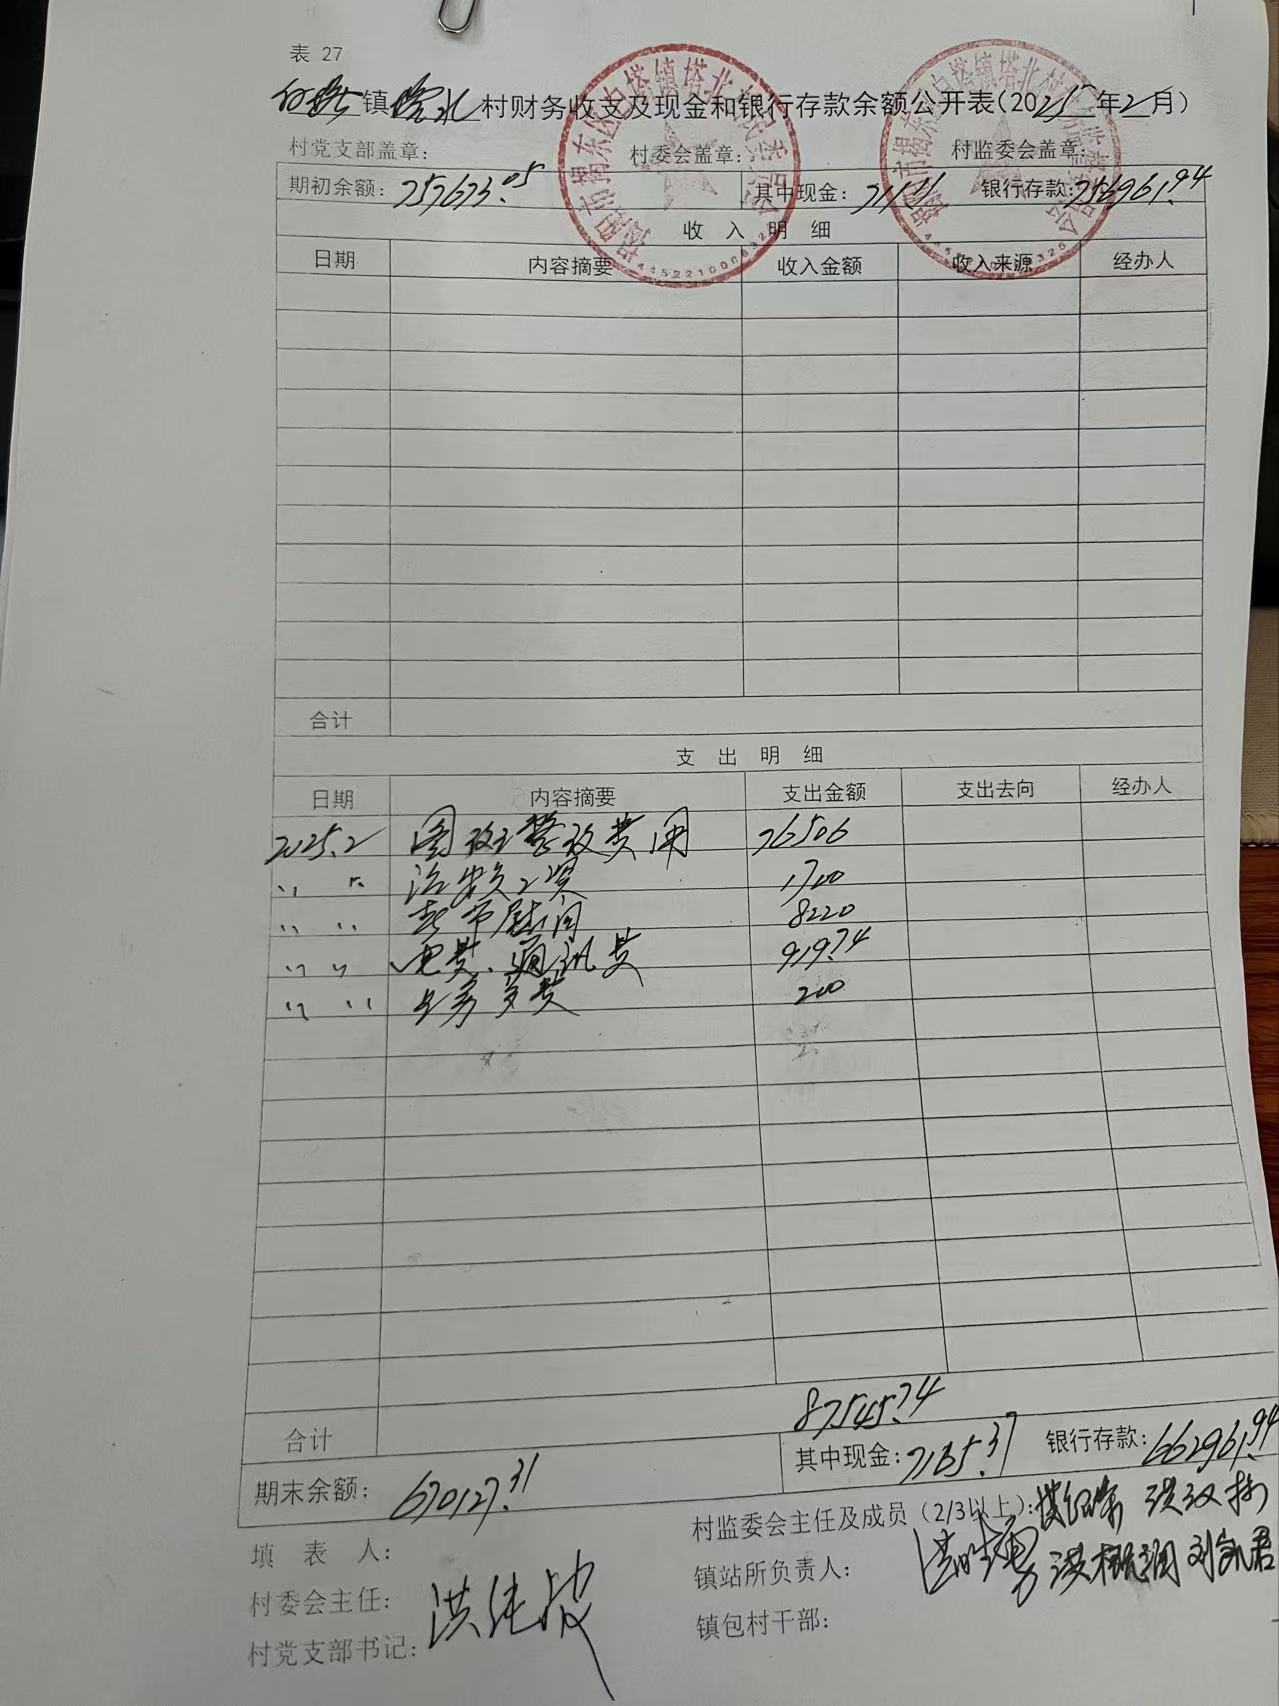 表 27
白塔镇塔北村财务收支及现金和银行存款余额公开表(2025年2月)
村党支部盖章: 村委会盖章: 村监委会盖章:
期初余额: 757673.05 其中现金: 711.11 银行存款: 756961.94
收 入 明 细
日期 内容摘要 收入金额 收入来源 经办人
合计
支 出 明 细
日期 内容摘要 支出金额 支出去向 经办人
2025.2 整改费用 76506
〃 〃 1700
〃 〃 春节慰问 8220
〃 〃 电费、通讯费 919.74
〃 〃 费 200
合计 87545.74
期末余额: 670127.31 其中现金: 7165.37 银行存款: 662961.94
填 表 人:
村委会主任:
村党支部书记: 洪
村监委会主任及成员(2/3以上):
镇站所负责人:
镇包村干部: